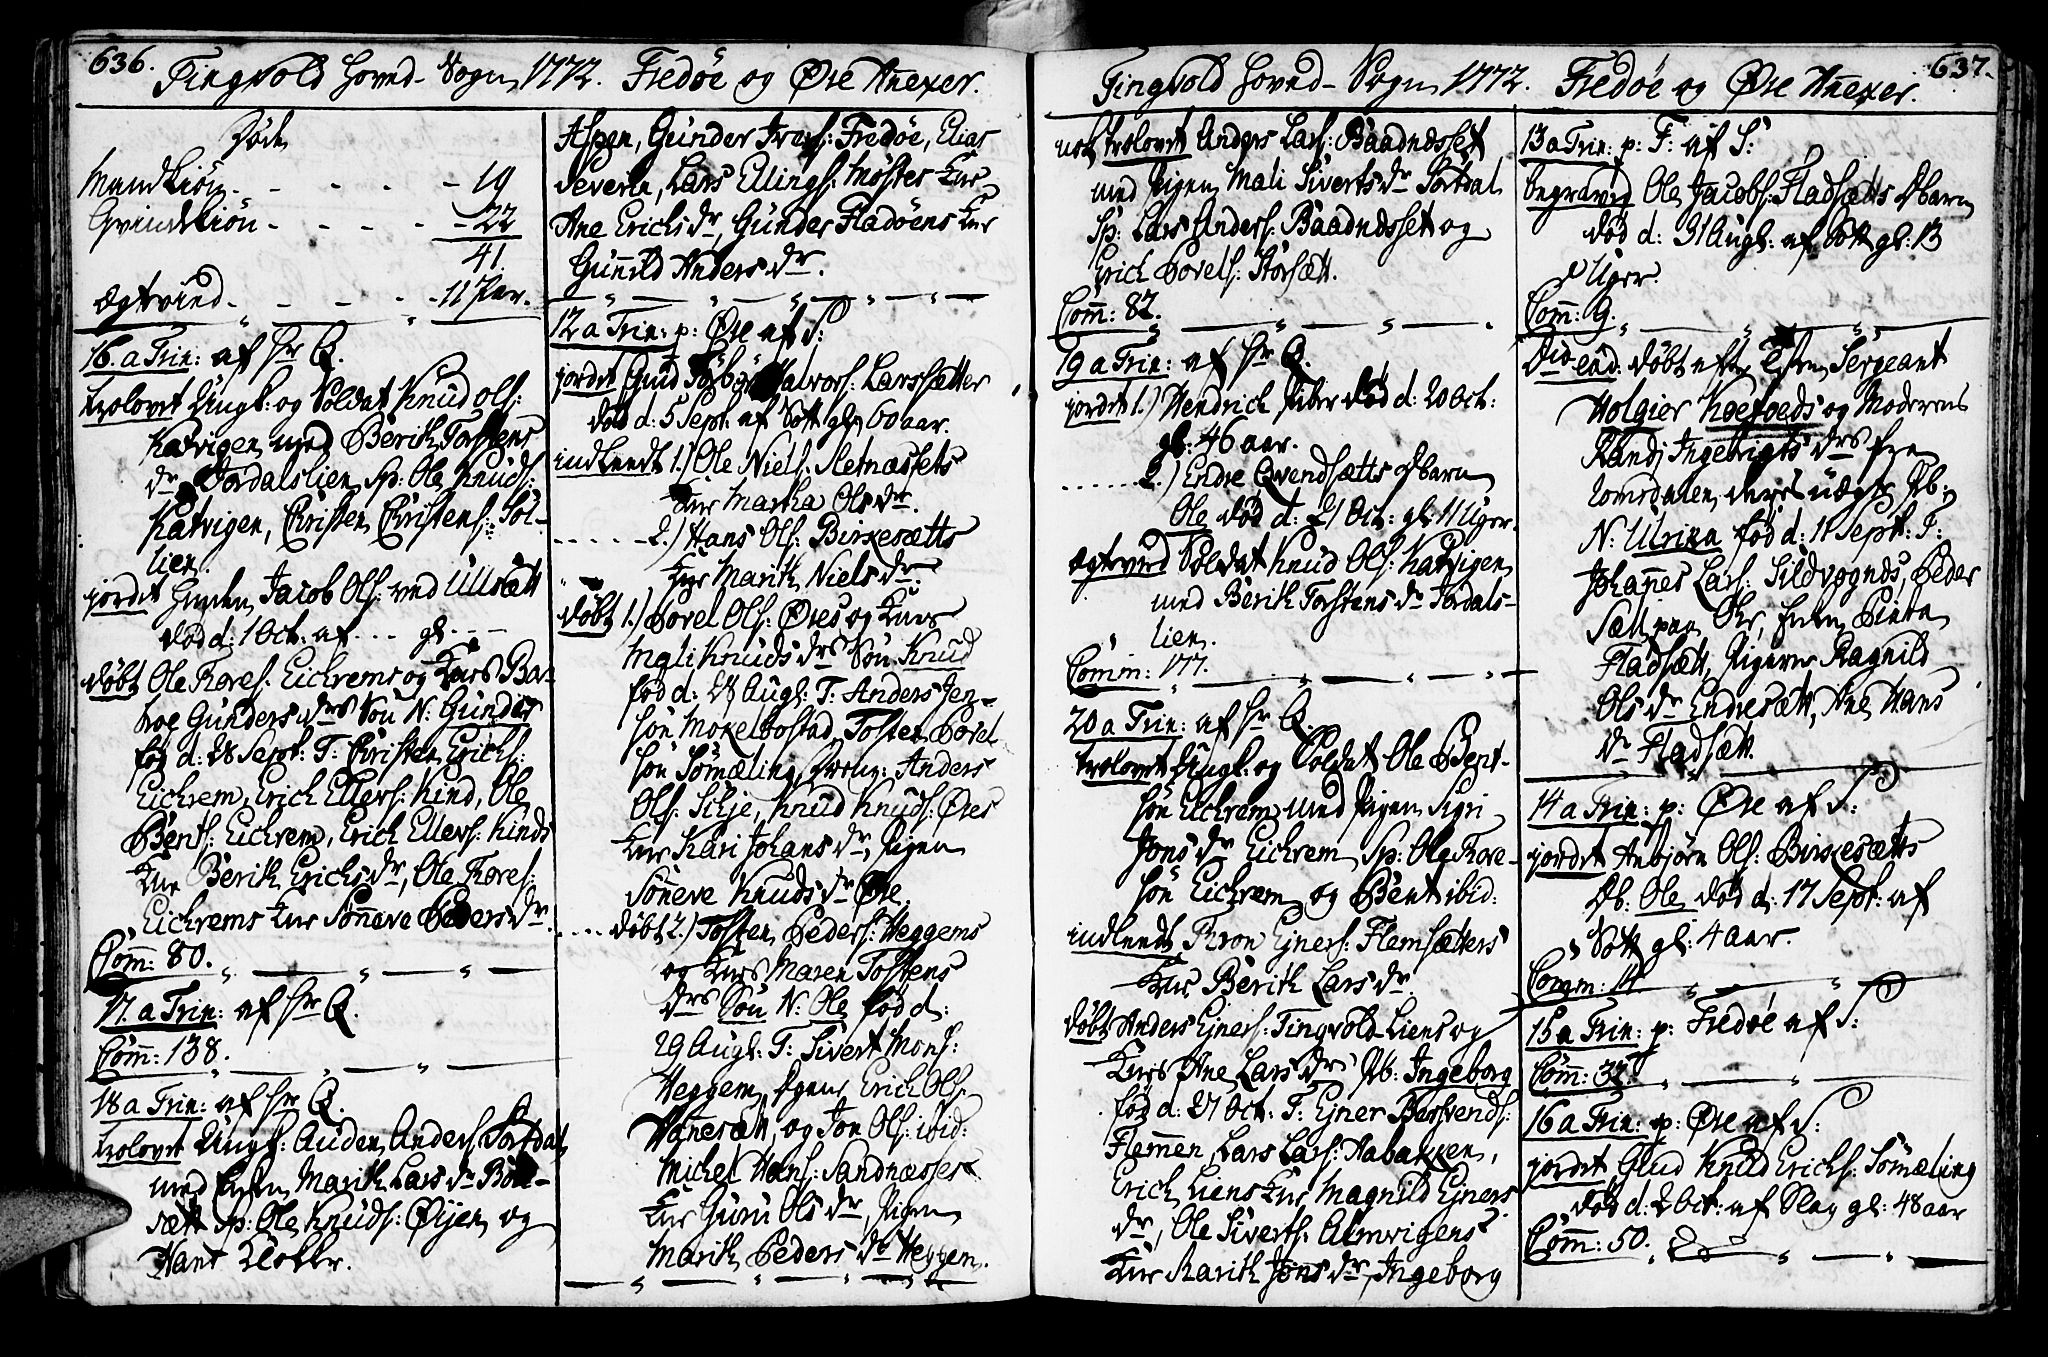 636. Tingvold Hoved-Sogn 1772. Fredøe og Øre Annexer.
Døde
Mandkiøn - - - - 19
Qvindkiøn - - - - 22
41.
Ægtevied - - - - 11 Par.
16. a Trin: af Hr Q.
trolovet Ungk: og Soldat Knud Ols:
Katvigen med Berith Torstens
Dr Jordalslien Sp: Ole Knuds:
Katvigen, Christen Christens: Jor-
lien.
jordet Jacob Ols: ved Ullsætt
død d: 1 Oct: af - - - gl: - - -
døbt Ole Tores: Eickrems og Kones Bar-
broe Gunders drs Søn N: Gunder
fød d: 28 Sept: T: Christen Erichs:
Eickrem, Erich Ellevs: Kind, Ole
Bents: Eickrem, Erich Ellevs: Kinds
Kone Berith Erichs dr, Ole Tores:
Eickrems Kone Sønneve Peders dr.
Comm: 80.
17. a Trin: af Hr Q.
Comm: 138.
18 a Trin: af Hr Q.
trolovet Ungk: Auden Anders: Jordal
med Enken Marith Lars dr
sætt Sp: Ole Knuds: Øijen og
Klokker.
Aspen, Gunder Ivers: Fredøe, Elias
Severin, Lars Ellings: Møster Kone
Ane Erichs dr, Gunder Fladøens Kone
Gunnild Anders dr.
12 a Trin: p: Øre af S:
jordet Halvors: Larssætter
død d: 5 Sept: af Sott gl: 60 aar.
indledt 1.) Ole Niels: Sletnæssets
Kone Martha Ols dr.
- - - - - 2.) Hans Ols: Birkesætts
Kone Marith Niels dr.
døbt 1.) Povel Ols: Øres og Kones
Mali Knuds drs Søn Knud
fød d: 28 Aug: T: Anders Jen-
søn Mokelbostad, Tosten Povel
søn Sømæling, Dreng: Anders
Ols: Silje, Knud Knuds: Øres
Kone Kari Johans dr, Pigen
Søneve Knuds dr Øre.
- - - døbt 2.) Tosten Peders: Heggems
og Kones Maren Tostens
drs Søn N: Ole fød d:
29 Aug: T: Sivert Mons:
Heggem, Erich Ols:
Hanesætt, og Jon Ols: ibid:
Michel Hans: Sandnæsses
Kone Guru Ols dr, Pigen
Marith Peders dr Heggem.
Tingvold Hoved-Sogn 1772. Fredøe og Øre Annexer. 637.
trolovet Anders Lars: Baadnesset
med Pigen Mali Siverts dr Jordal
Sp: Lars Anders: Baadnesset og
Erich Povels: Storsætt.
Comm: 82.
19 a Trin: af Hr Q.
jordet 1.) Hendrich død d: 20 Oct:
gl: 46 aar.
- - - - - 2.) Endre Qvendsætts Dbarn
Ole død d: 21 Oct: gl: 11 Uger.
Ægtevied Soldat Knud Ols: Katvigen
med Berith Torstens dr Jordals-
lien.
Comm: 177.
20 a Trin: af Hr Q.
trolovet Ungk: og Soldat Ole Bent-
søn Eickrem med Pigen Sigri
Jons dr Eickrem Sp: Ole Tore-
søn Eickrem og Bent ibid:
indledt Tron Ejners: Flemsætters
Kone Berith Lars dr.
døbt Anders Ejners: Tingvold-Liens og
Kones Ane Lars drs Pb: Ingeborg
fød d: 27 Oct: T: Ejner Bersvends:
Flemmen, Lars Lars: Aabakken,
Erich Liens Kone Magnild Ejners
dr, Ole Siverts: Almvigens
Kone Marith Jons dr, Ingeborg
13 a Trin: p: F: af S:
begravet Ole Jacobs: Fladsætts Dbarn
død d: 31 Aug: af Sott gl: 13
Uger.
Comm: 9.
Dito eod: døbt efter Sergeant
Holgier Koefoeds og Moderens
Randi Ingebrigts drs fra
Romsdalen deres uægte Pb:
N: Ulrica fød d: 11 Sept: T:
Johannes Lars: Sildvognds, Peder
Sætt paa Øre, Enken
Fladsætt, Pigerne Ragnild
Ols dr Endresætt, Ane Hans
dr Fladsætt.
14 a Trin: p: Øre af S:
jordet Anbjørn Ols: Birkesætts
Db: Ole død d: 17 Sept: af
Sott gl: 4 aar.
Comm: 14.
15 a Trin: p: Fredøe af S:
Comm: 32.
16 a Trin: p: Øre af S:
jordet Knud Erichs: Sømæling
død d: 2 Oct: af Slag gl: 48 aar
Comm: 50.